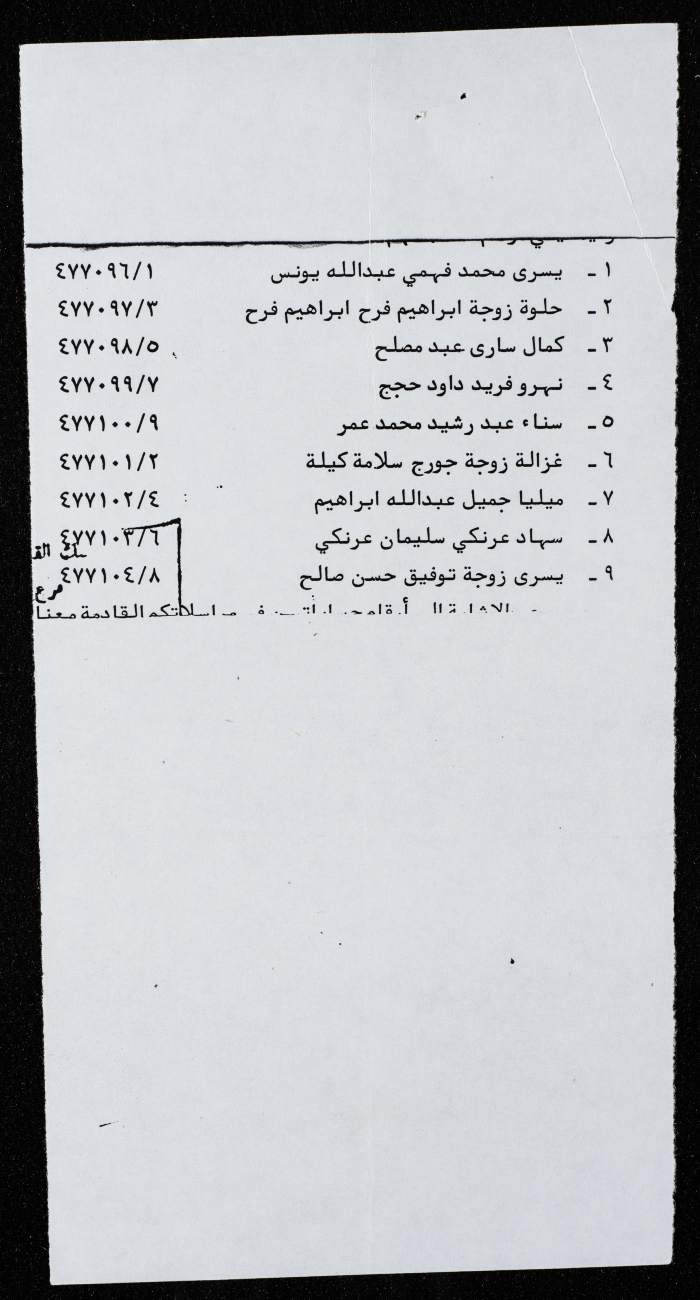 ١ - يسرى محمد فهمي عبدالله يونس ٤٧٧٠٩٦/١
٢ - حلوة زوجة ابراهيم فرح ابراهيم فرح ٤٧٧٠٩٧/٣
٣ - كمال سارى عبد مصلح ٤٧٧٠٩٨/٥
٤ - نهرو فريد داود حجج ٤٧٧٠٩٩/٧
٥ - سناء عبد رشيد محمد عمر ٤٧٧١٠٠/٩
٦ - غزالة زوجة جورج سلامة كيلة ٤٧٧١٠١/٢
٧ - ميليا جميل عبدالله ابراهيم ٤٧٧١٠٢/٤
٨ - سهاد عرنكي سليمان عرنكي ٤٧٧١٠٣/٦
٩ - يسرى زوجة توفيق حسن صالح ٤٧٧١٠٤/٨
الاشارة الى أرقام حساباتهن في مراسلاتكم القادمة معنا